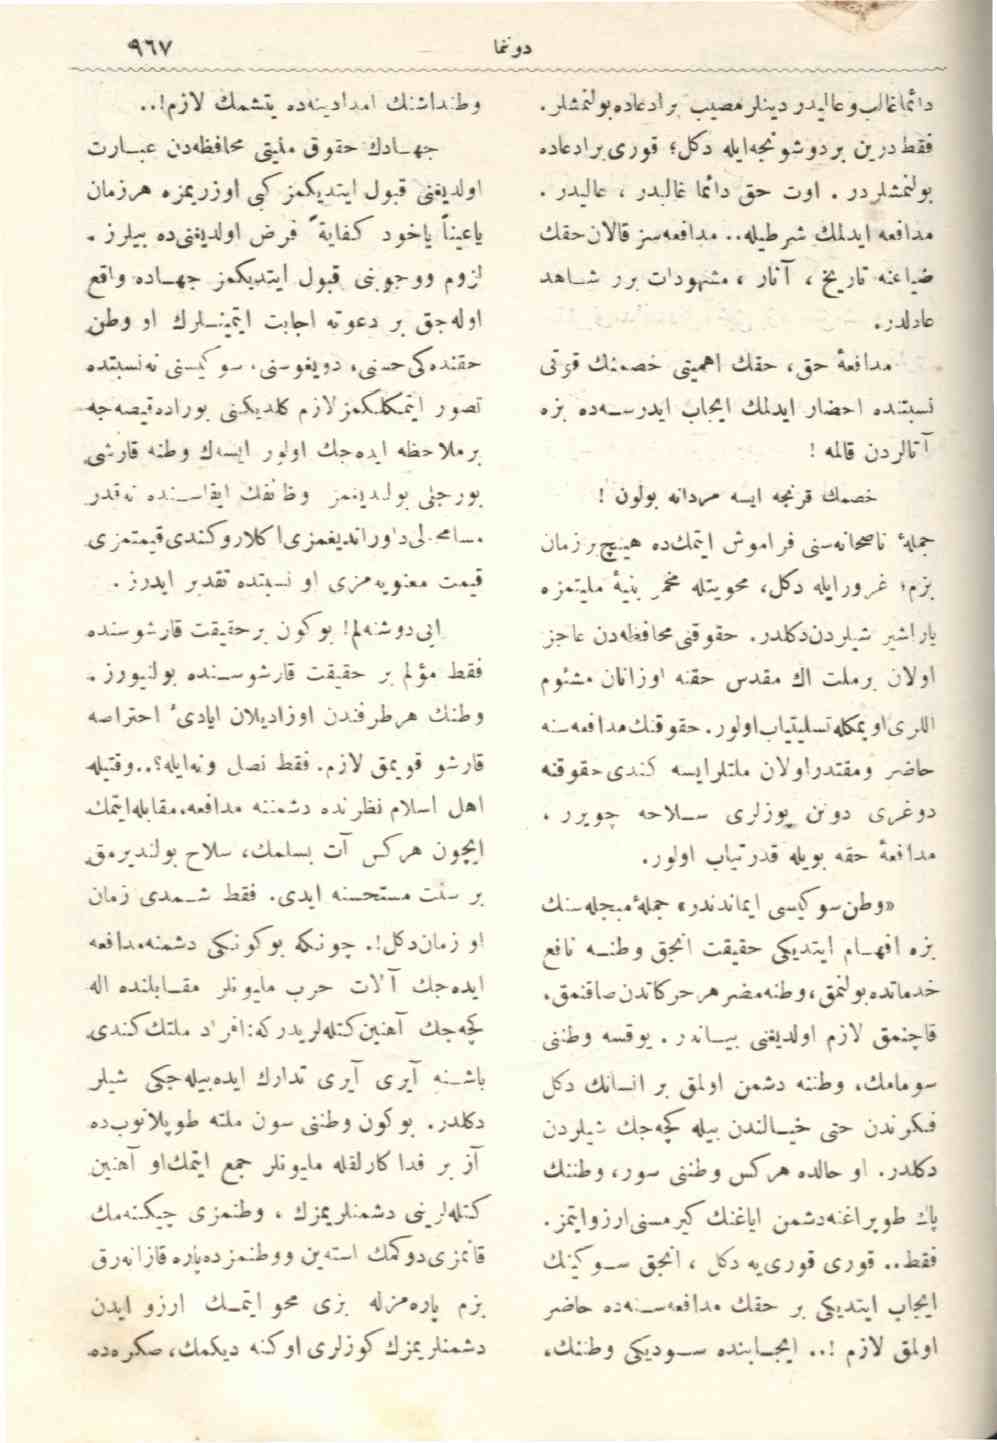 دونما
٩٦٧
دائما غالب و عاليدر دينلر مصيب بر ادعاده بولنمشلر.
فقط درين بر دوشونجه ايله دكل؛ قورى بر ادعاده
بولنمشلردر . اوت حق دائما غالبدر ، عاليدر .
مدافعه ايدلمك شرطيله.. مدافعه‌سز قالان حقك
ضياعنه تاريخ ، آثار ، مشهودات برر شــاهد
عادلدر.
مدافعهٔ حق، حقك اهميتى خصمنك قوتى
نسبتنده احضار ايدلمك ايجاب ايدرســه‌ده بزه
آتالردن قالمه !
خصمك قرنجه ايسه مردانه بولون !
جملهٔ ناصحانه‌سنى فراموش ايتمك‌ده هيچ بر زمان
بزم؛ غرور ايله دكل، محويتله مخمر بنيهٔ مليتمزه
ياراشير شيلردن دكلدر. حقوقنى محافظه‌دن عاجز
اولان بر ملت اك مقدس حقنه اوزانان مشئوم
اللرى اوپمكله تسليتياب اولور. حقوقنك مدافعه‌سنه
حاضر ومقتدر اولان ملتلر ايسه كندى حقوقنه
دوغرى دونن يوزلرى ســلاحه چويرر .
مدافعهٔ حقه بويله قدرتياب اولور.
«وطن سوكيسى ايماندندر» جملهٔ مبجله‌سنك
بزه افهــام ايتديكى حقيقت انجق وطنــه نافع
خدماتده بولنمق، وطنه مضر هر حركاتدن صاقنمق،
قاچنمق لازم اولديغنى بيــاندر . يوقسه وطننى
سومامك، وطننه دشمن اولمق بر انسانك دكل
فكرندن حتى خيــالندن بيله كچه‌جك شيلردن
دكلدر. او حالده هركس وطننى سور، وطننك
پاك طوپراغنه دشمن اياغنك كيرمسنى ارزو ايتمز.
فقط.. قورى قورى‌يه دكل ، انجق ســوكينك
ايجاب ايتديكى بر حقك مدافعه‌ســنه‌ده حاضر
اولمق لازم !.. ايجــابنده ســوديكى وطننك،
وطنداشنك امدادينه‌ده يتشمك لازم!..
جهــادك حقوق مليتى محافظه‌دن عبــارت
اولديغنى قبول ايتديكمز كبى اوزريمزه هر زمان
يا عيناً ياخود كفايةً فرض اولديغنى‌ده بيلرز .
لزوم ووجوبنى قبول ايتديكمز جهــاده واقع
اوله‌جق بر دعوته اجابت ايتمينــلرك او وطن
حقنده‌كى حسنى، دويغوسنى، سوكيسنى نه نسبتده
تصور ايتمكلكمز لازم كلديكنى بوراده قيصه‌جه
بر ملاحظه ايده‌جك اولور ايسه‌ك وطنه قارشى
بورجلى بولنديغمز وظائفك ايفاســنده نه‌قدر
مسامحه‌لى داورانديغمزى اكلار و كندى قيمتمزى
قيمت معنويه‌مزى او نسبتده تقدير ايدرز .
ايى دوشنه‌لم! بوكون بر حقيقت قارشوسنده
فقط مؤلم بر حقيقت قارشوســنده بولنيورز .
وطنك هر طرفندن اوزاديلان ايادىٔ احتراصه
قارشو قويمق لازم. فقط نصل و نه ايله؟.. وقتيله
اهل اسلام نظرنده دشمننه مدافعه، مقابله ايتمك
ايچون هركس آت بسلمك، سلاح بولنديرمق
بر سنت مستحسنه ايدى. فقط شــمدى زمان
او زمان دكل!. چونكه بوكونكى دشمنه مدافعه
ايده‌جك آلات حرب مليونلر مقــابلنده اله
كچه‌جك آهنين كتله‌لريدر كه: افراد ملتك كندى
باشــنه آيرى آيرى تدارك ايده‌بيله‌جكى شيلر
دكلدر. بوكون وطننى سون ملته طوپلانوب‌ده
آز بر فداكارلقله مليونلر جمع ايتمك او آهنين
كتله‌لرينى دشمنلريمزك ، وطنمزى چيكنه‌مك
قانمزى دوكمك استه‌ين و وطنمزده پاره قازانه‌رق
بزم پاره‌مزله بزى محو ايتمــك ارزو ايدن
دشمنلريمزك كوزلرى اوكنه ديكمك، صكره‌ده